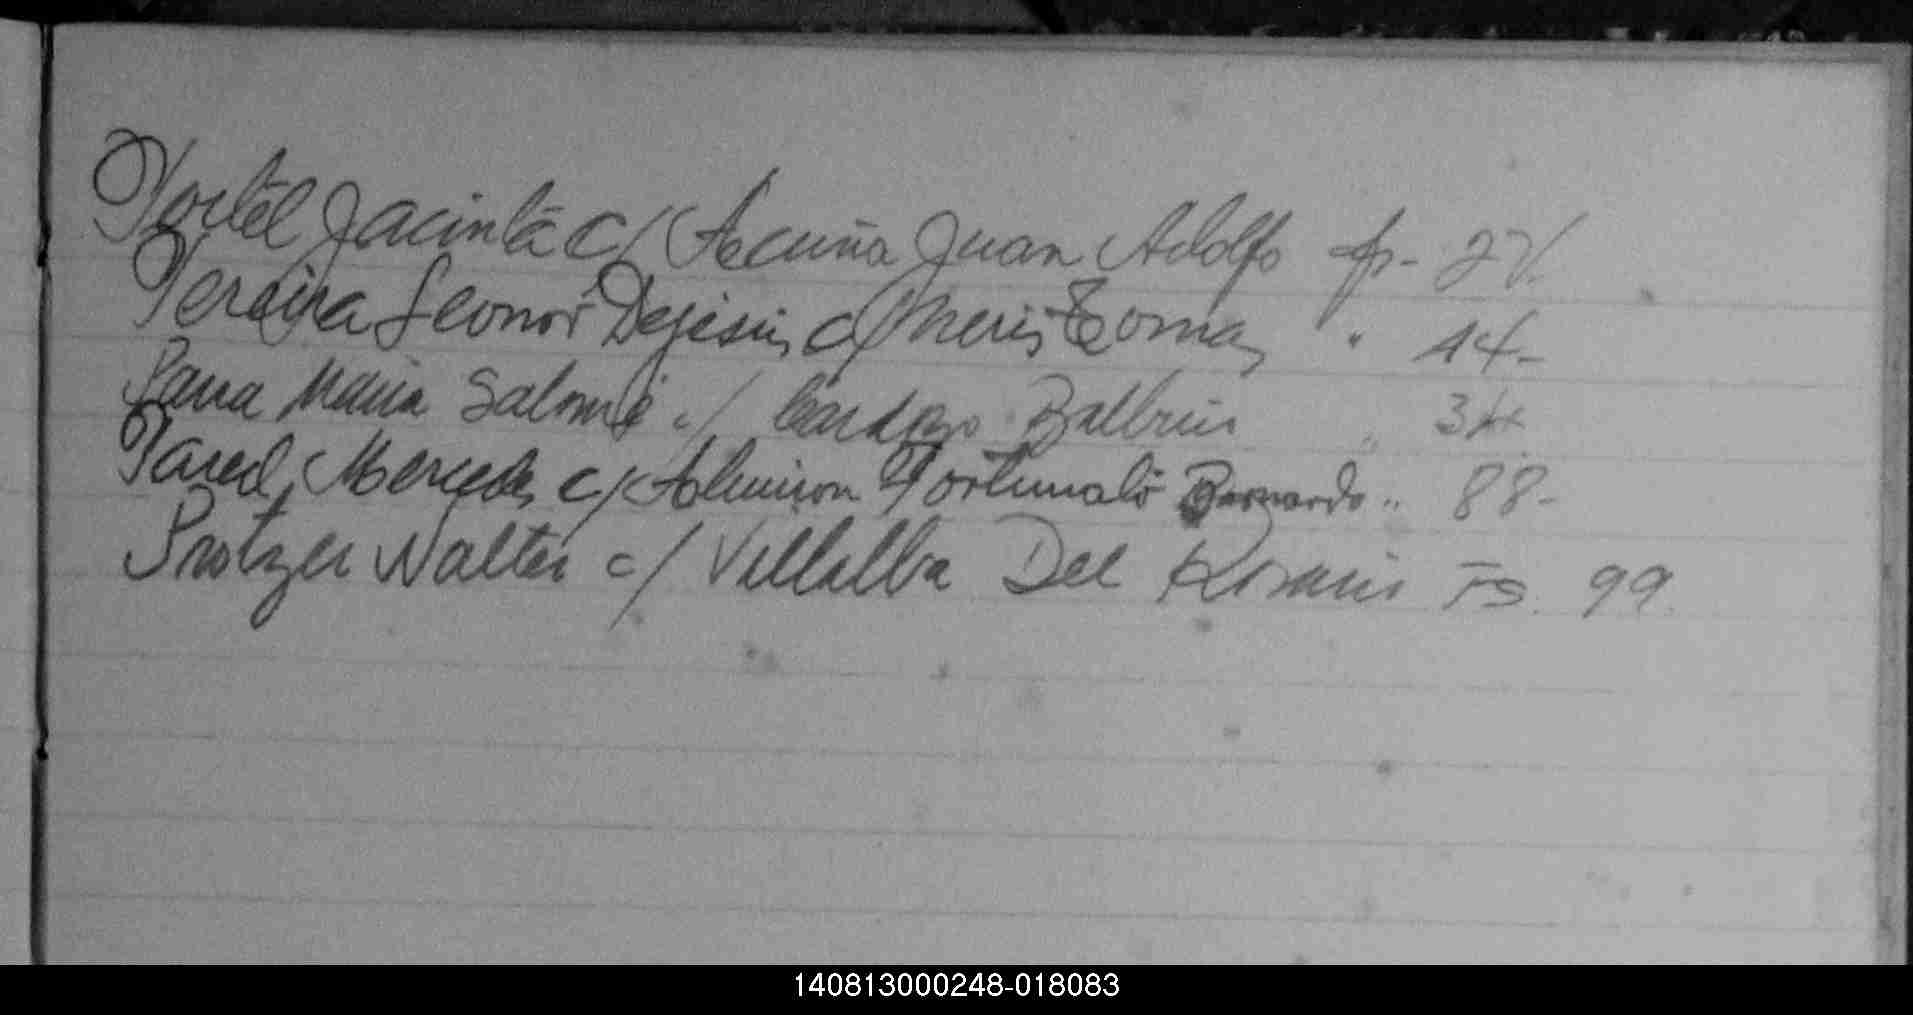 Portel Jacinta c/ Acuña Juan Adolfo fs- 2V.
Pereira Leonor Dejesus c/ Neris Tomas " 14-
Parra Maria Salomé c/ Cardozo Balbin " 34
Pared Mercedes c/ Fortunato Bernardo " 88-
Protzer Walter c/ Villalba Del Rosario Fs. 99
140813000248-018083